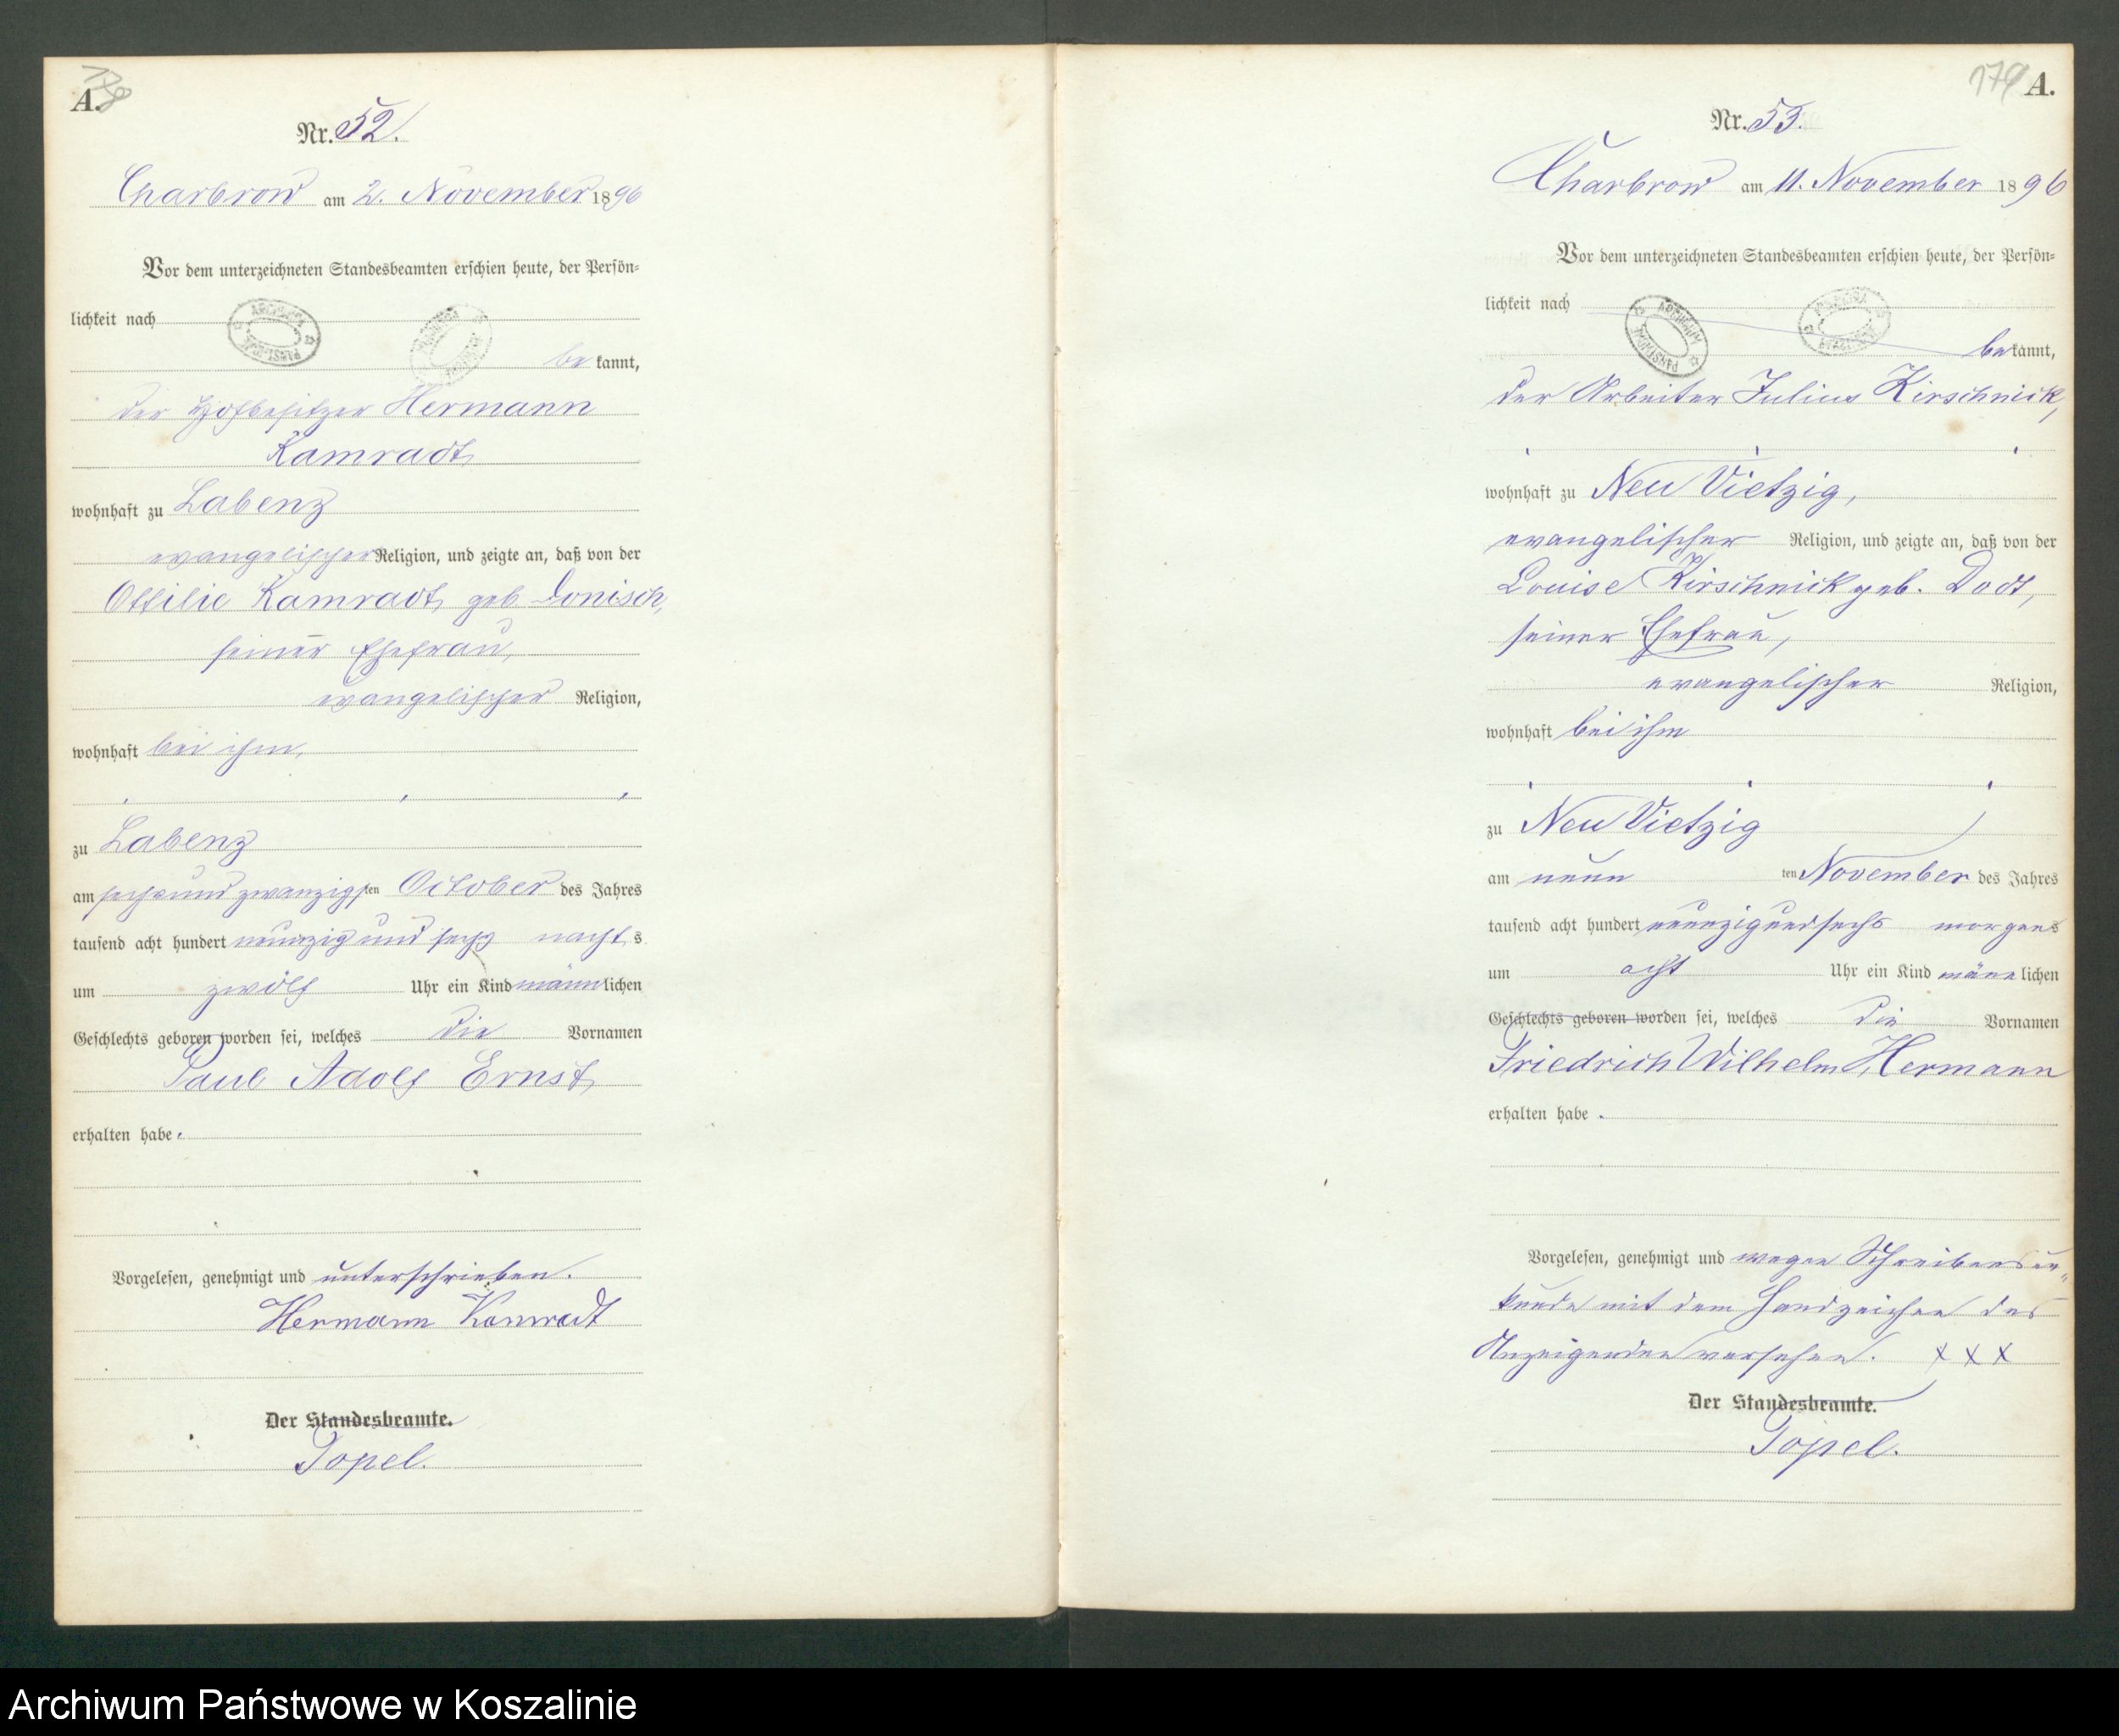 A.
Nr. 52.
Charbrow am 2. November 1896
Vor dem unterzeichneten Standesbeamten erschien heute, der Persön=
lichkeit nach
bekannt,
der Hofbesitzer Hermann
Kamradt
wohnhaft zu Labenz
evangelischer Religion, und zeigte an, daß von der
Ottilie Kamradt geb Donisch,
seiner Ehefrau,
evangelischer Religion,
wohnhaft bei ihm,
zu Labenz
am sechsundzwanzigsten October des Jahres
tausend acht hundert neunzig und sechs nachts
um zwölf Uhr ein Kind männlichen
Geschlechts geboren worden sei, welches die Vornamen
Paul Adolf Ernst
erhalten habe.
Vorgelesen, genehmigt und unterschrieben.
Hermann Kamradt
Der Standesbeamte.
Topel.
179 A.
Nr. 53.
Charbrow am 11. November 1896
Vor dem unterzeichneten Standesbeamten erschien heute, der Persön=
lichkeit nach
bekannt,
der Arbeiter Julius Kirschnick,
wohnhaft zu Neu Vietzig,
evangelischer Religion, und zeigte an, daß von der
Louise Kirschnick geb. Dodt,
seiner Ehefrau,
evangelischer Religion,
wohnhaft bei ihm
zu Neu Vietzig
am neun ten November des Jahres
tausend acht hundert neunzig und sechs morgens
um acht Uhr ein Kind männlichen
Geschlechts geboren worden sei, welches die Vornamen
Friedrich Wilhelm Hermann
erhalten habe.
Vorgelesen, genehmigt und wegen Schreibensun=
kunde mit dem Handzeichen des
Anzeigenden versehen. XXX
Der Standesbeamte.
Topel.
Archiwum Państwowe w Koszalinie